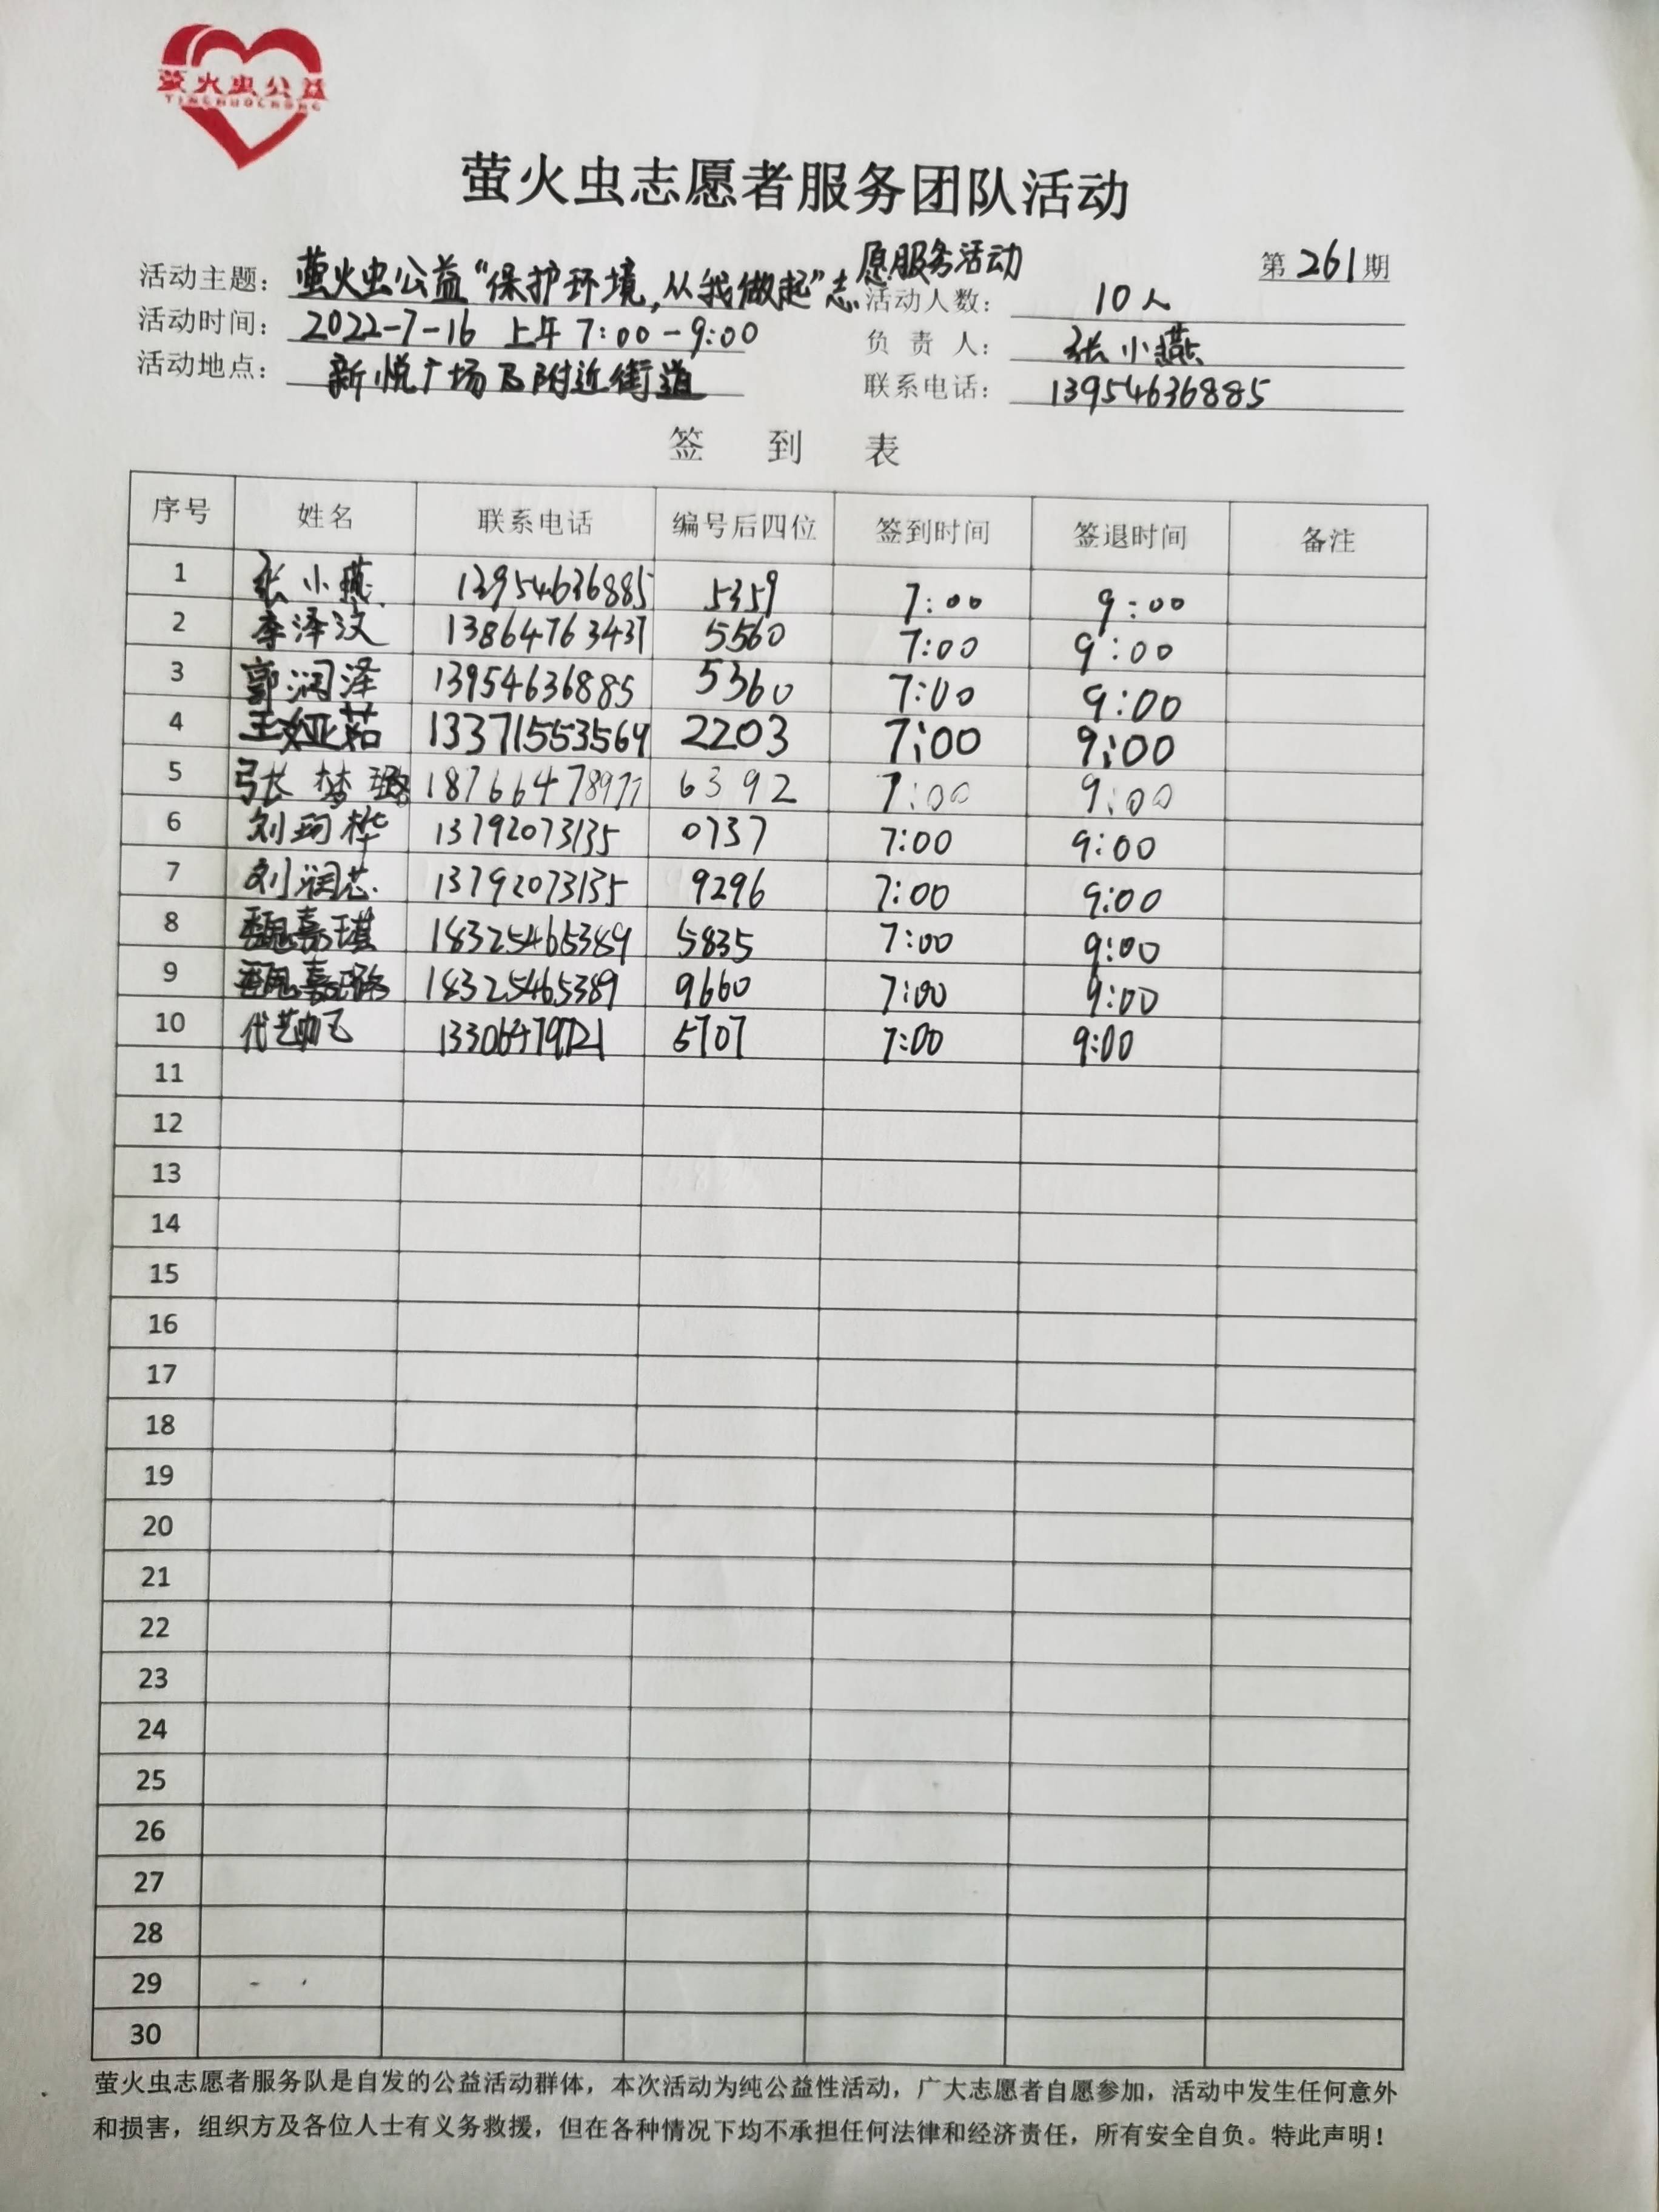 萤火虫公益
YINGHUOCHONG
萤火虫志愿者服务团队活动
第 261 期
活动主题: 萤火虫公益"保护环境,从我做起"志愿服务活动
活动人数: 10人
活动时间: 2022-7-16 上午 7:00-9:00
负责人: 张小燕
活动地点: 新悦广场及附近街道
联系电话: 13954636885
签 到 表
序号 姓名 联系电话 编号后四位 签到时间 签退时间 备注
1 张小燕 13954636885 5359 7:00 9:00
2 李泽汶 13864763437 5560 7:00 9:00
3 郭润泽 13954636885 5360 7:00 9:00
4 王娅茹 13371553564 2203 7:00 9:00
5 张梦璐 18766478977 6392 7:00 9:00
6 刘珂桦 13792073135 0737 7:00 9:00
7 刘润芯 13792073135 9296 7:00 9:00
8 魏嘉琪 18325465389 5835 7:00 9:00
9 魏嘉璐 18325465389 9660 7:00 9:00
10 代艺 13306479721 5707 7:00 9:00
11
12
13
14
15
16
17
18
19
20
21
22
23
24
25
26
27
28
29
30
萤火虫志愿者服务队是自发的公益活动群体，本次活动为纯公益性活动，广大志愿者自愿参加，活动中发生任何意外
和损害，组织方及各位人士有义务救援，但在各种情况下均不承担任何法律和经济责任，所有安全自负。特此声明！